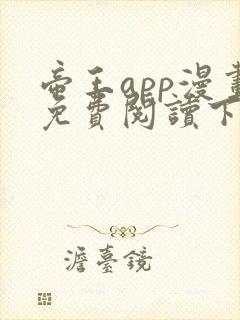 帝王app漫畫
免費閱讀下
澹臺鏡